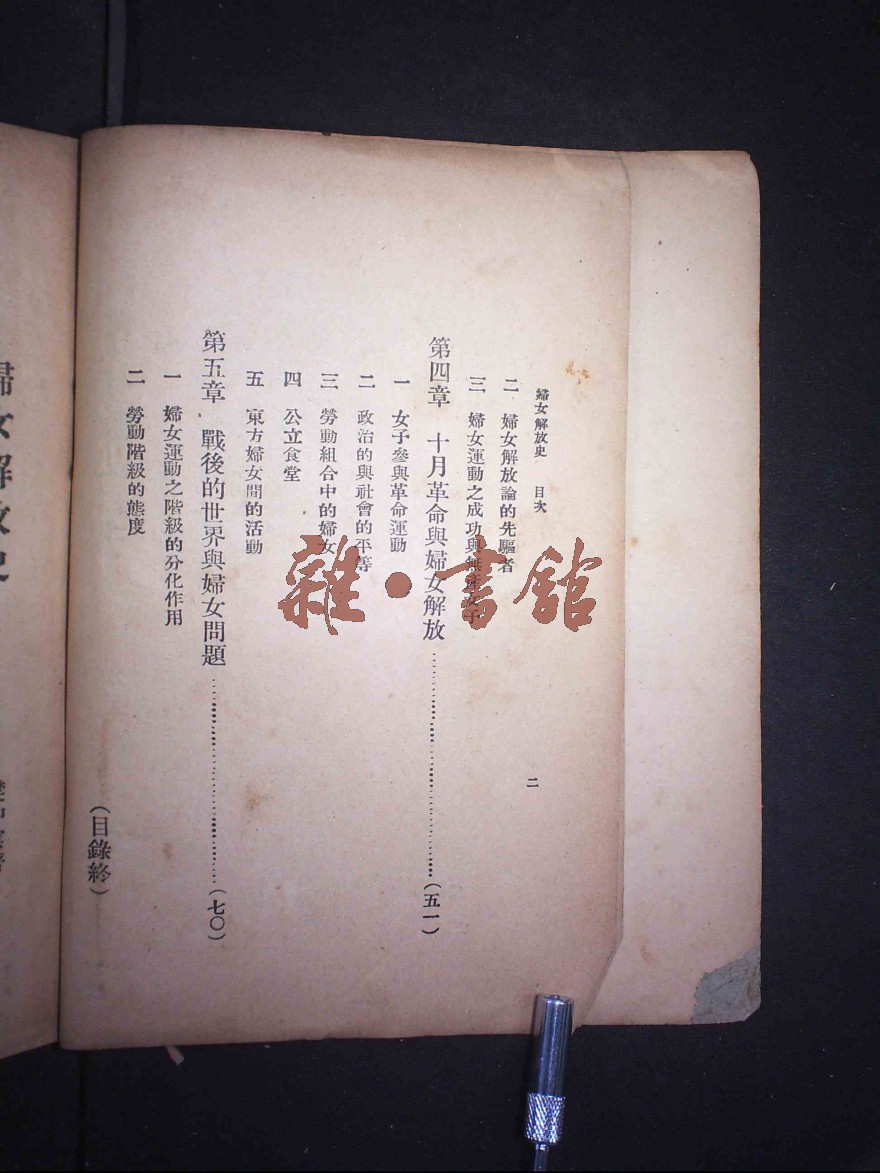 婦女解放史 目次 二
二 婦女解放論的先驅者
三 婦女運動之成功與
第四章 十月革命與婦女解放……(五一)
一 女子參與革命運動
二 政治的與社會的平等
三 勞動組合中的婦女
四 公立食堂
五 東方婦女間的活動
第五章 戰後的世界與婦女問題……(七〇)
一 婦女運動之階級的分化作用
二 勞動階級的態度
(目錄終)
婦女解放史
雜·書館